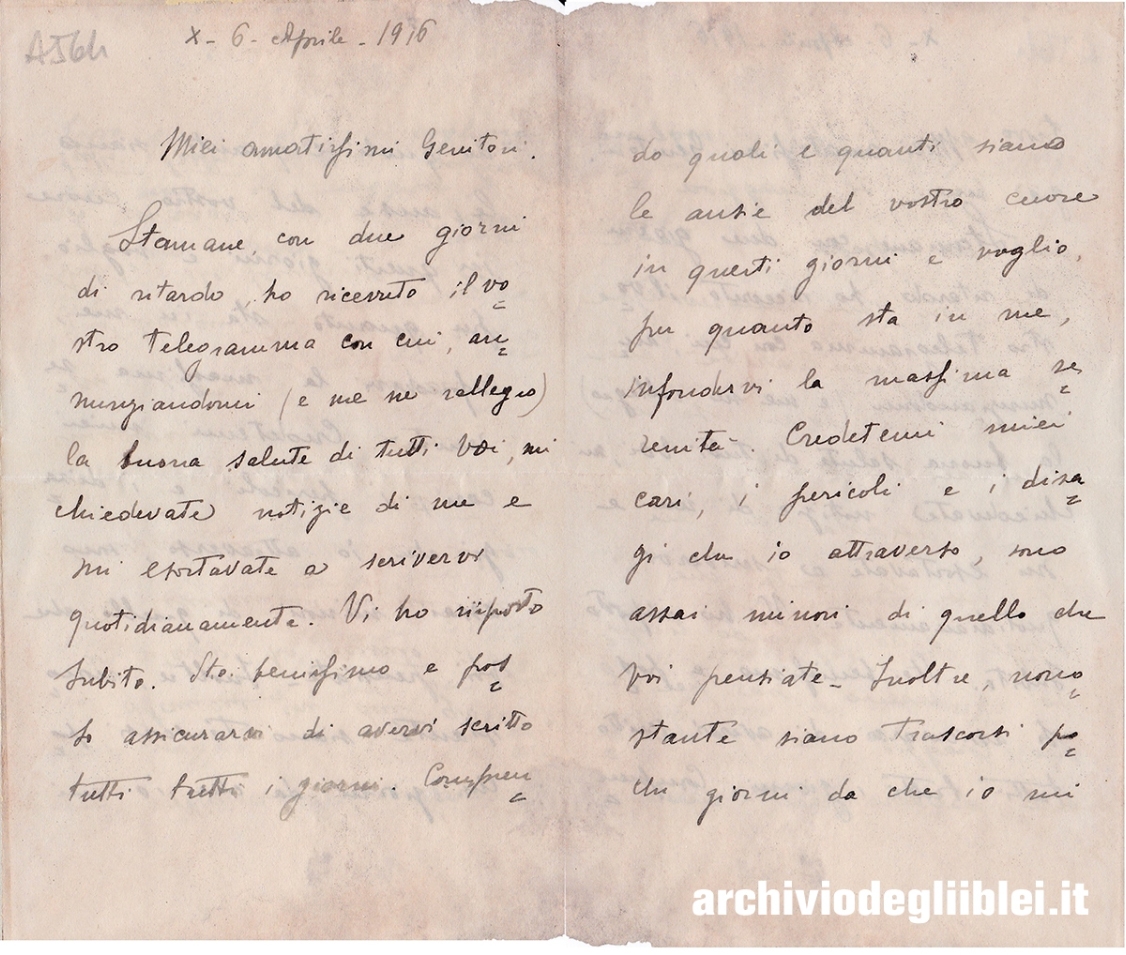 A56h
X - 6 - Aprile - 1916
Miei amatissimi Genitori.
Stamane, con due giorni
di ritardo, ho ricevuto il vo=
stro telegramma con cui, an=
nunziandomi (e me ne rallegro)
la buona salute di tutti Voi, mi
chiedevate notizie di me e
mi esortavate a scrivervi
quotidianamente. Vi ho risposto
subito. Sto benissimo e pos=
so assicurarvi di avervi scritto
tutti tutti i giorni. Compren=
do quali e quanti siano
le ansie del vostro cuore
in questi giorni e voglio,
per quanto sta in me,
infondervi la massima se=
renità. Credetemi miei
cari, i pericoli e i disa=
gi che io attraverso, sono
assai minori di quello che
Voi pensiate - Inoltre, nono=
stante siano trascorsi po=
chi giorni da che io mi
archiviodegliiblei.it